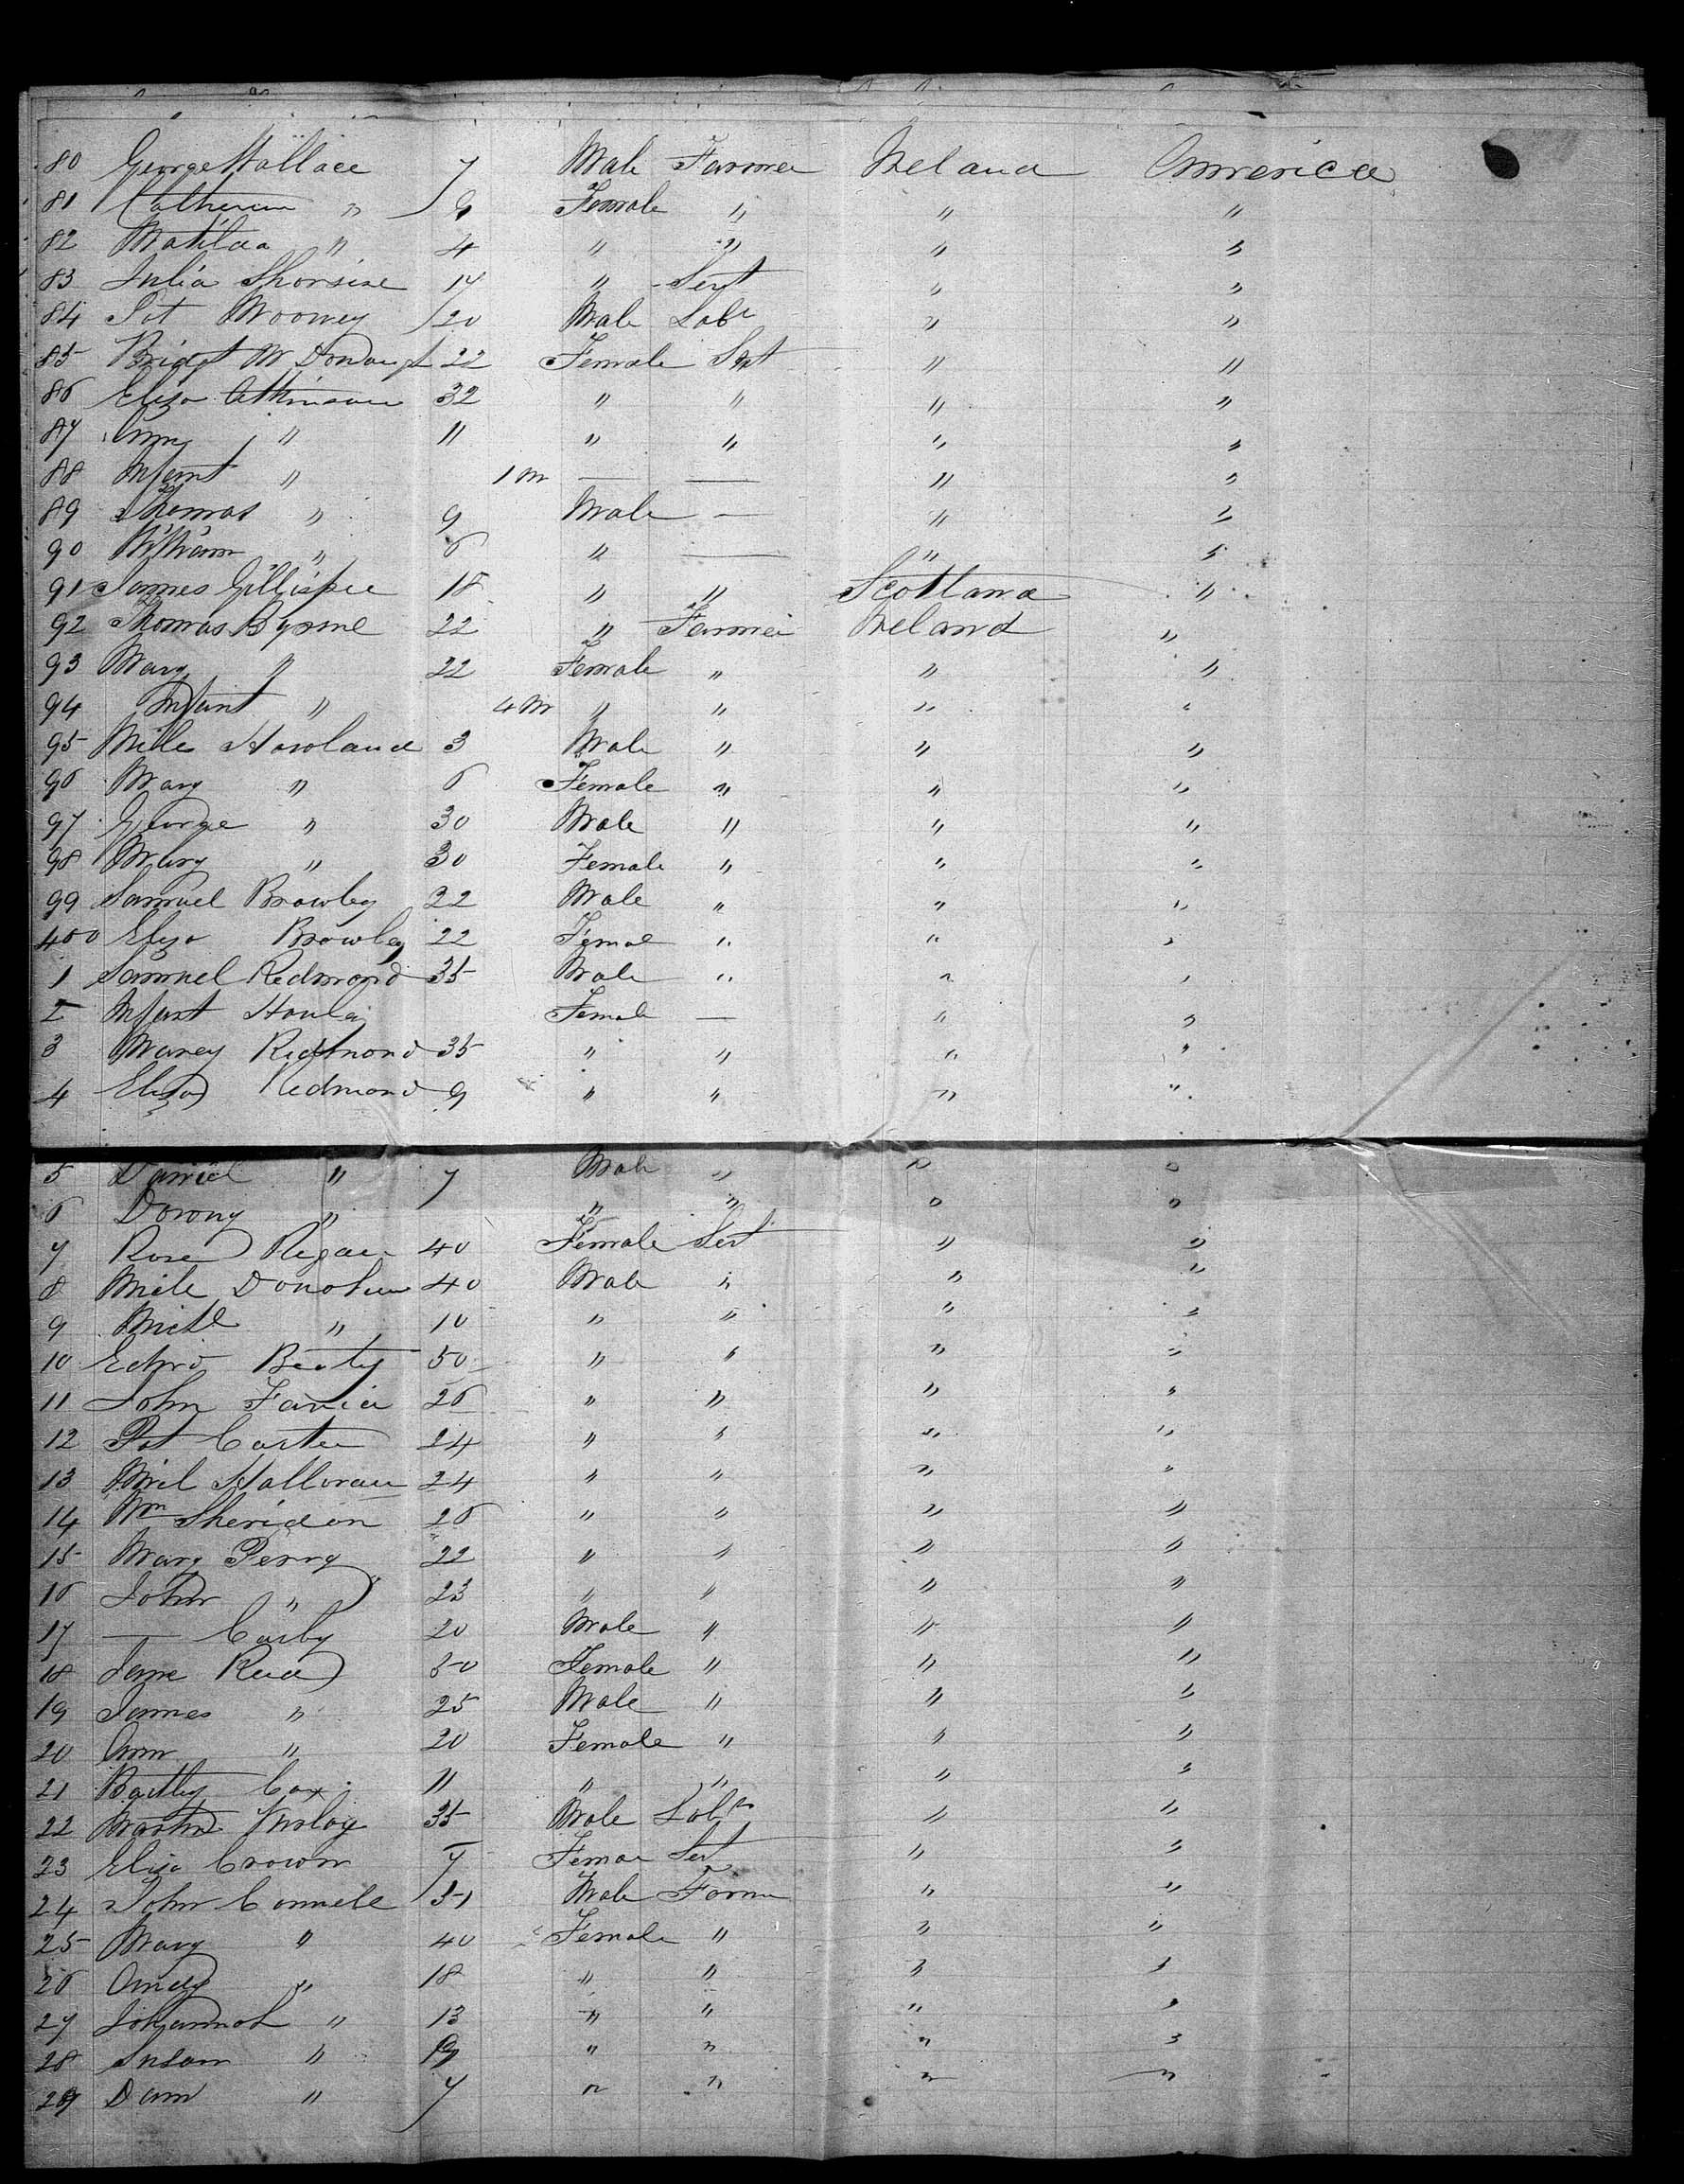 80 George Wallace 7 Male Farmer Ireland America
81 Catherine " 9 Female " " "
82 Matilda " 4 " " " "
83 Julia 14 " Servt " "
84 Pat Mooney 20 Male Labr " "
85 Bridgt McDonaugh 22 Female Sevt " "
86 Eliza Atkinson 32 " " " "
87 Amy " 11 " " " "
88 Infant " 1 m — — " "
89 Thomas " 9 Male — " "
90 William " 6 " — " "
91 James Gillispee 18 " " Scotland "
92 Thomas Byrne 22 " Farmer Ireland "
93 Mary " 22 Female " " "
94 Infant " 4 m " " " "
95 Howland 3 Male " " "
96 Mary " 6 Female " " "
97 George " 30 Male " " "
98 Mary " 30 Female " " "
99 Samuel Browley 22 Male " " "
400 Eliza Browley 22 Femal " " "
1 Samuel Redmond 35 Male " " "
2 Infant Female — " "
3 Redmond 35 " " " "
4 Eliza Redmond 9 " " " "
5 Daniel " 7 Male " " "
6 " " " " "
7 Rose Regan 40 Female Sevt " "
8 Donohue 40 Male " " "
9 Michl " 10 " " " "
10 Edwd Beaty 50 " " " "
11 John 26 " " " "
12 Pat Carter 24 " " " "
13 Halloran 24 " " " "
14 Wm Sheridan 26 " " " "
15 Mary Perry 22 " " " "
16 John " 23 " " " "
17 — 20 Male " " "
18 Jane 50 Female " " "
19 James " 25 Male " " "
20 Ann " 20 Female " " "
21 Bartley Cox 11 " " " "
22 Martin 35 Male Labr " "
23 Eliza Crown 7 Female Sevt " "
24 John Connell Male Farmr " "
25 Mary " 40 Female " " "
26 " 18 " " " "
27 Johannah " 13 " " " "
28 Susan " " " " "
29 Dann " 7 " " " "